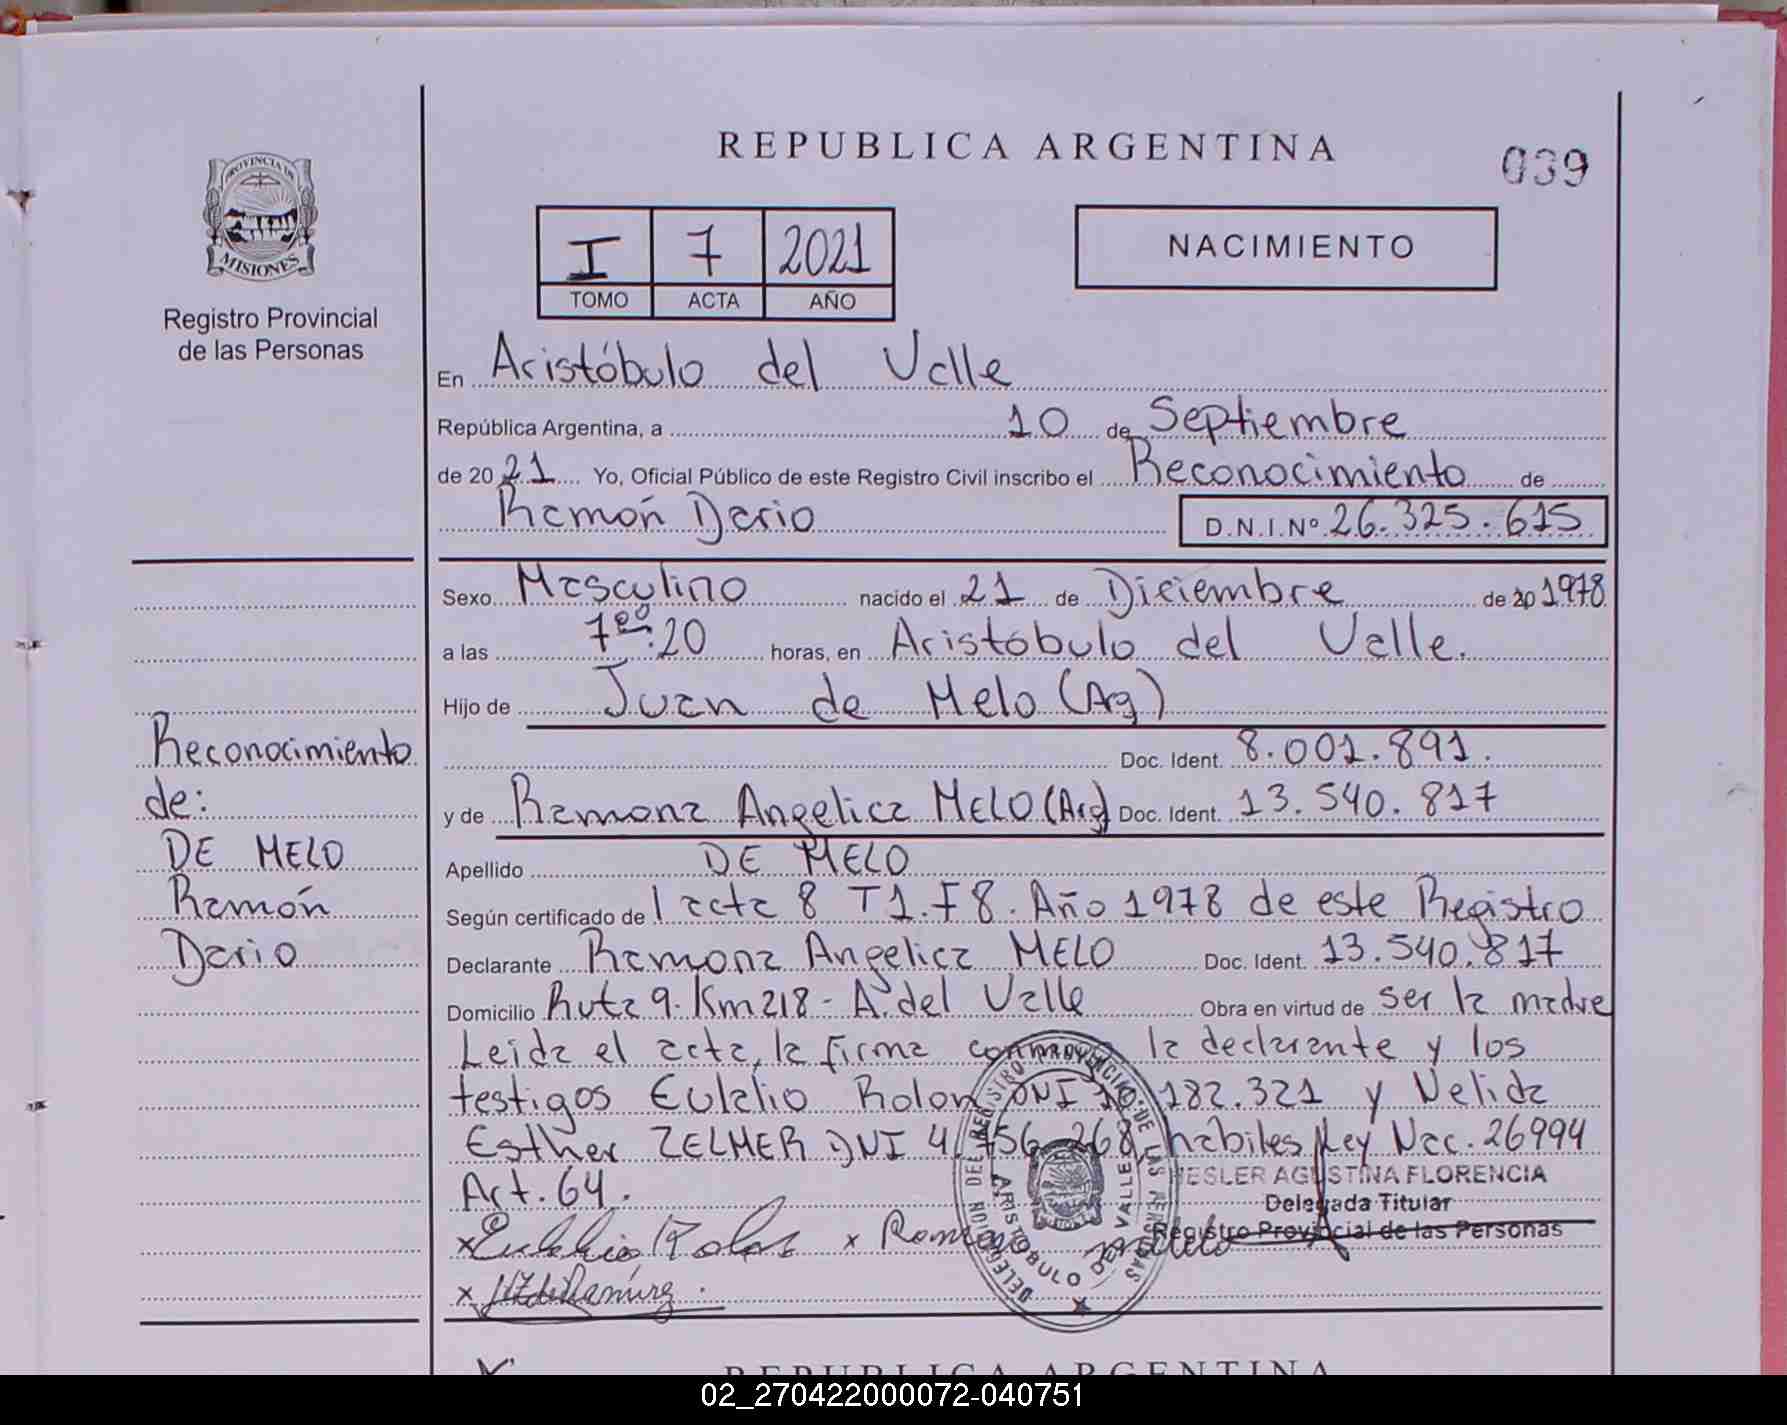 REPUBLICA ARGENTINA
039
PROVINCIA DE
MISIONES
Registro Provincial
de las Personas
I 7 2021
TOMO ACTA AÑO
NACIMIENTO
En Aristóbulo del Valle
República Argentina, a 10 de Septiembre
de 20 21 Yo, Oficial Público de este Registro Civil inscribo el Reconocimiento de
Ramón Dario D.N.I.Nº 26.325.615
Sexo Masculino nacido el 21 de Diciembre de 20 1978
a las 7:20 horas, en Aristóbulo del Valle.
Hijo de Juan de Melo (Ag)
Doc. Ident. 8.001.891.
y de Ramona Angelica MELO (Arg) Doc. Ident. 13.540.817
Apellido DE MELO
Según certificado de acta 8 T1. F8. Año 1978 de este Registro
Declarante Ramona Angelica MELO Doc. Ident. 13.540.817
Domicilio Ruta 9. Km 218 - A. del Valle Obra en virtud de ser la madre
Leida el acta, la firma conmigo la declarante y los
testigos Eulalio Rolon DNI 182.321 y Nelida
Esther ZELMER DNI 268, habiles Ley Nac. 26994
Art. 64.
Reconocimiento
de:
DE MELO
Ramón
Dario
HESLER AGUSTINA FLORENCIA
Delegada Titular
Registro Provincial de las Personas
x Eulalio Rolon x Ramona Melo
x
DELEGACION DEL REGISTRO PROVINCIAL DE LAS PERSONAS
ARISTOBULO DEL VALLE
REPUBLICA ARGENTINA
02_270422000072-040751